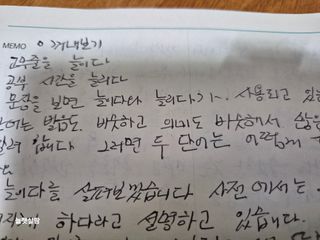 MEMO
고무줄을 늘이다
공부 시간을 늘리다
문장을 보면 늘이다와 늘리다가 사용되고 있
발음도 비슷하고 의미도 비슷해서 많은
않습니다 그러면 두 단어는 어떻게
늘이다를 살펴보겠습니다 사전에서는
하다라고 설명하고 있습니다.
늘랫살방